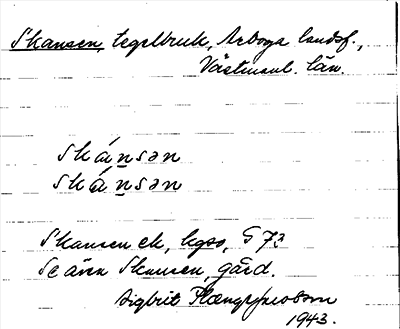 Skansen, tegelbruk, Arboga landsf.,
Västmanl. län.
skánsən
skánsən
Skansen ek, kgso, G 73
Se även Skansen, gård.
Sigbrit Plænge Jacobson
1943.